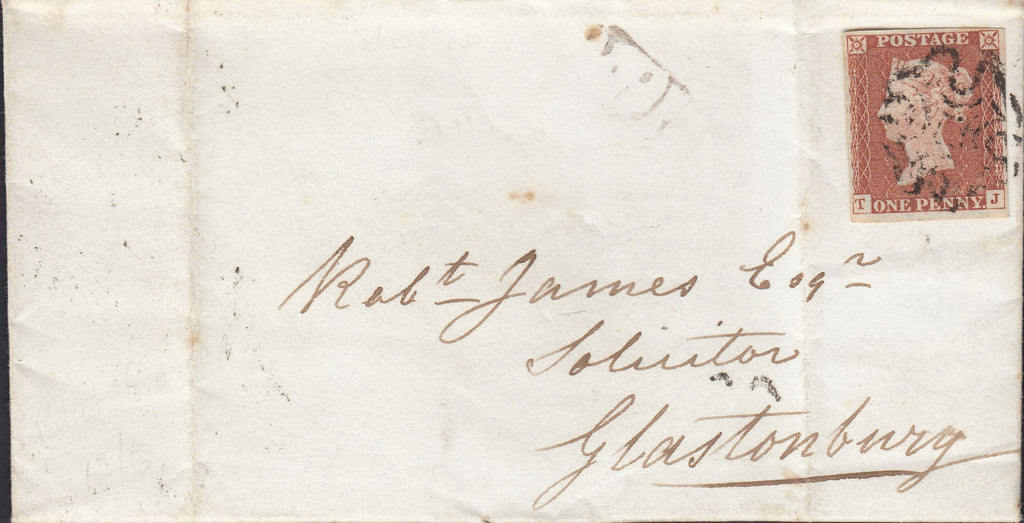 POSTAGE
T ONE PENNY. J
Robt James Esqr
Solicitor
Glastonbury